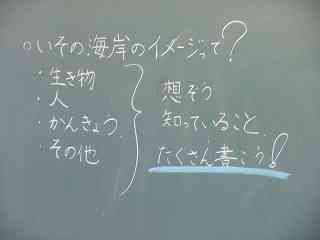 ○いその海岸のイメージって？
・生き物
・人
・かんきょう
・その他
想ぞう
知っていること
たくさん書こう！